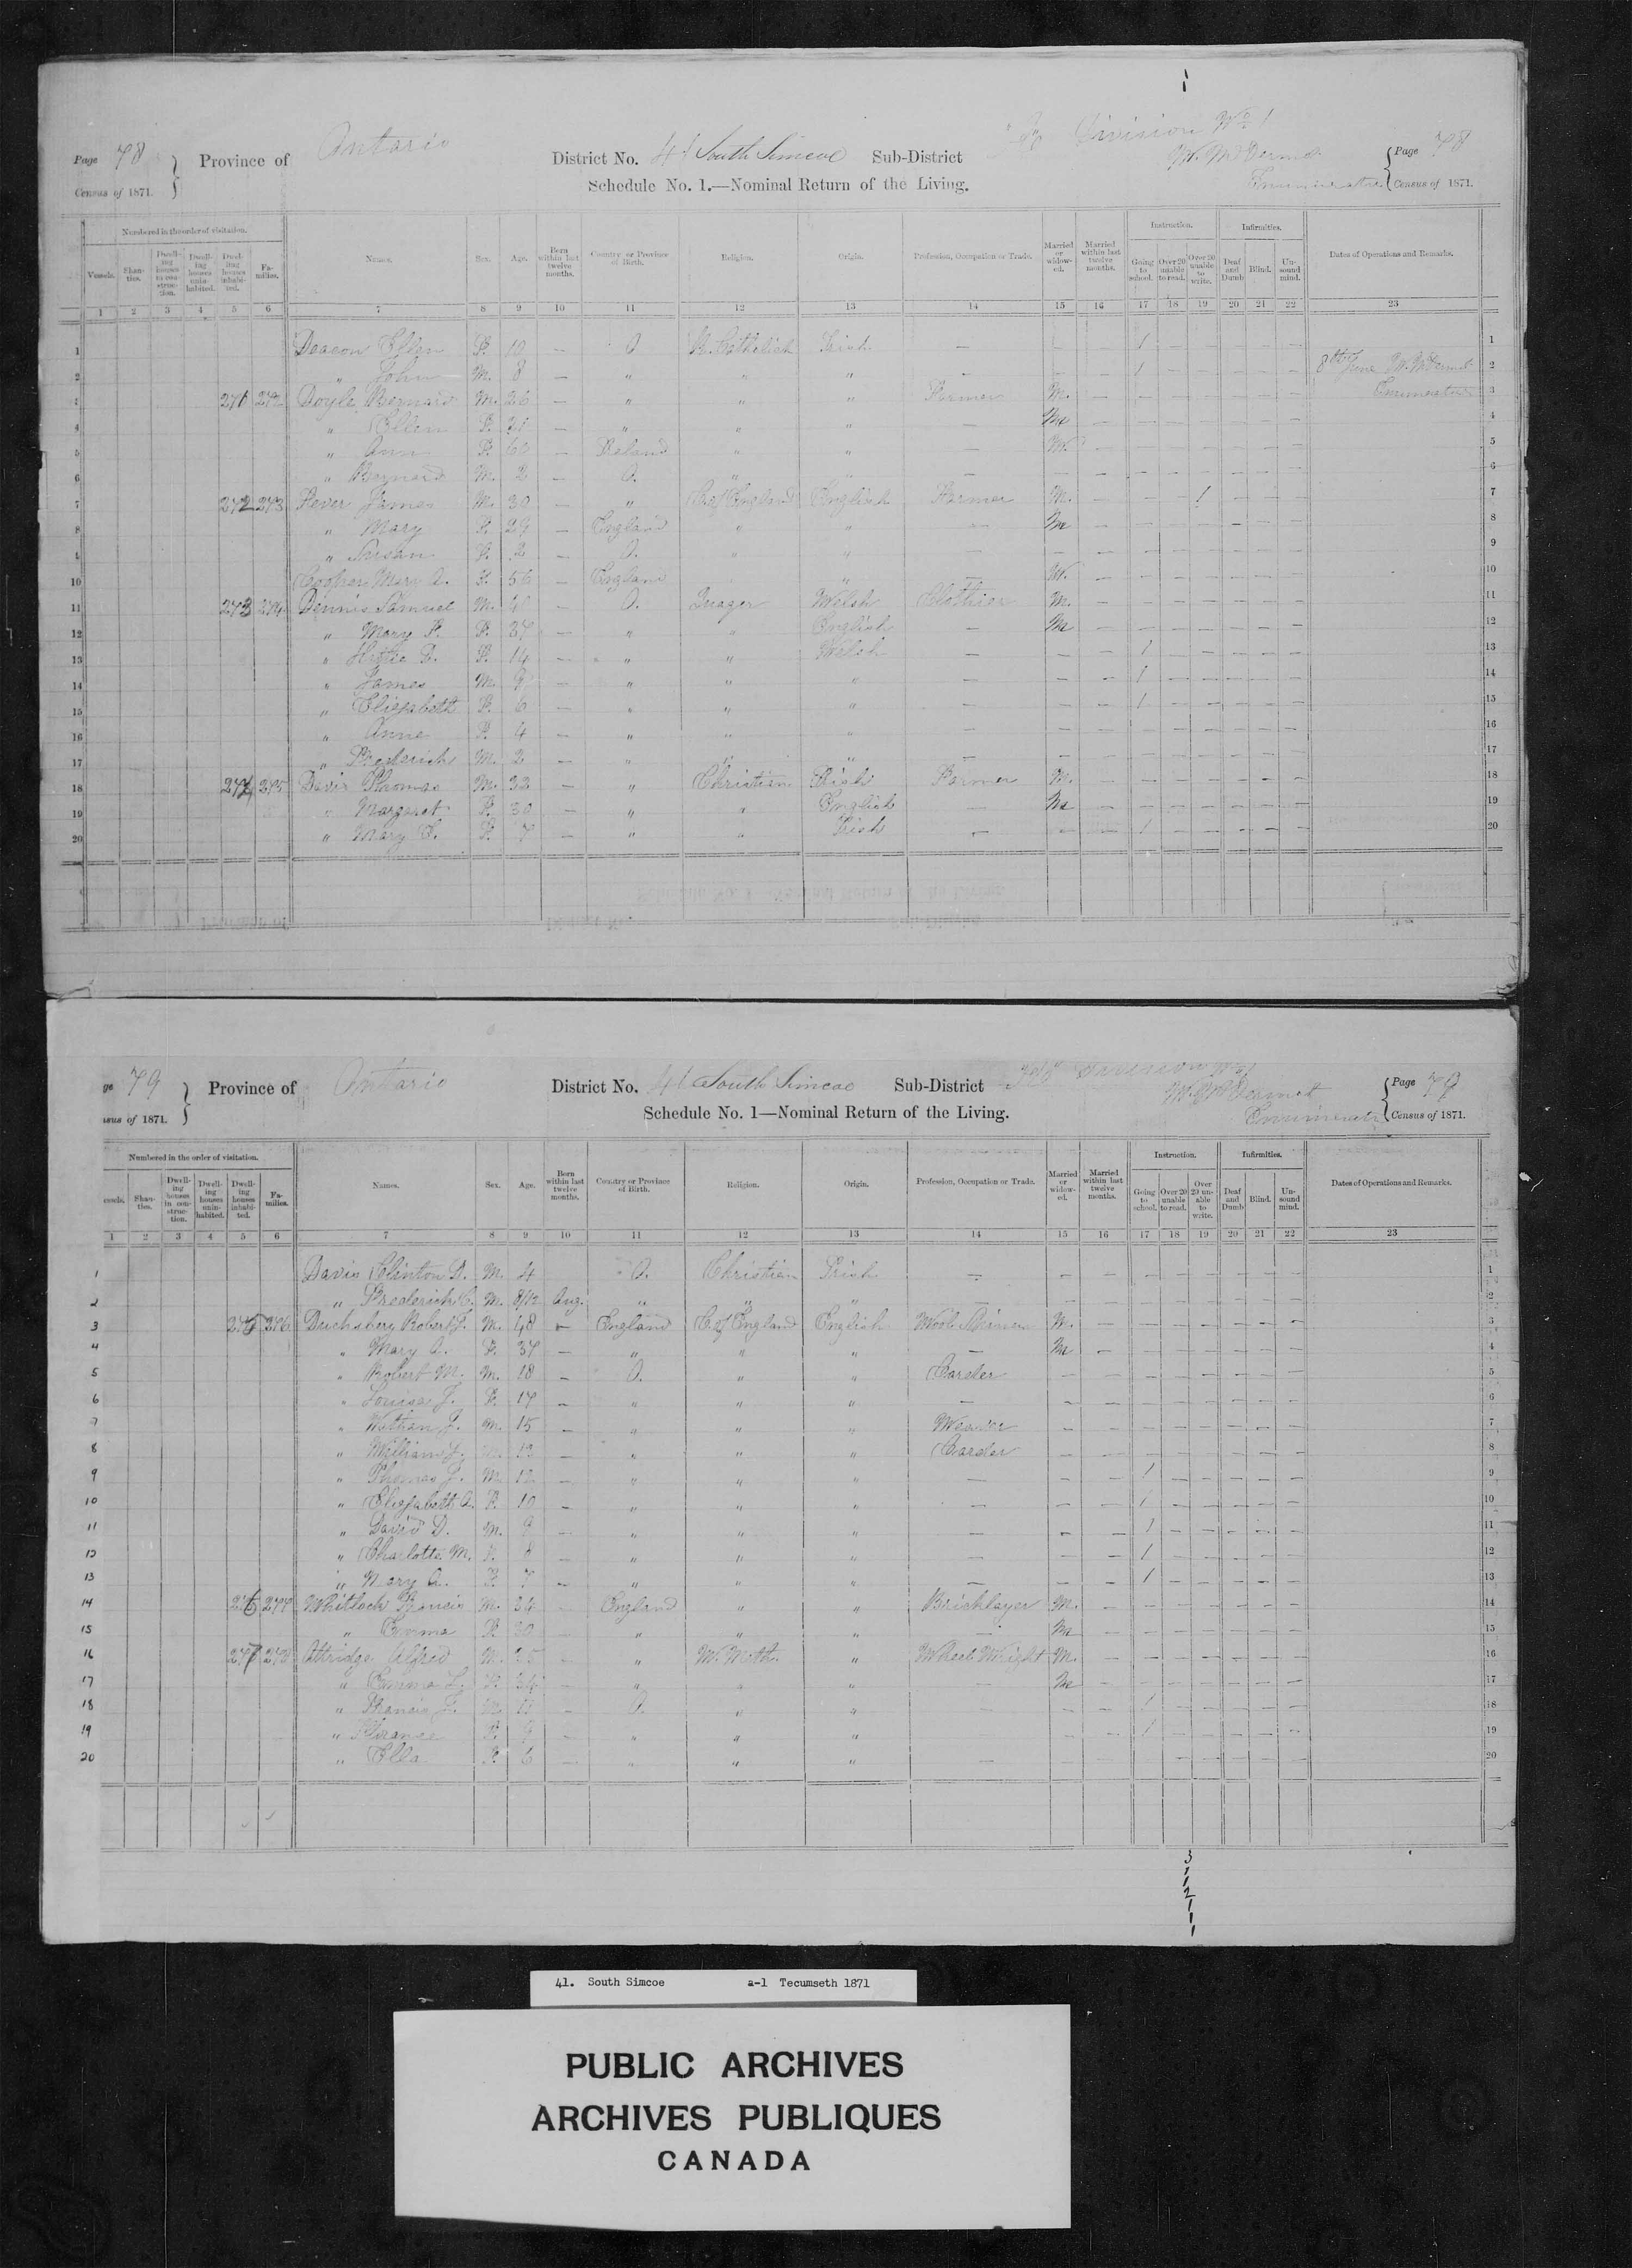 Page 78 Province of Ontario District No. 41 South Simcoe Sub-District Division No 1
Census of 1871. Schedule No. 1.—Nominal Return of the Living. W. McDermot Enumerator Page 78 Census of 1871.
Numbered in the order of visitation. Instruction. Infirmities.
Vessels. Shanties. Dwelling houses in construction. Dwelling houses uninhabited. Dwelling houses inhabited. Families. Names. Sex. Age. Born within last twelve months. Country or Province of Birth. Religion. Origin. Profession, Occupation or Trade. Married or widowed. Married within last twelve months. Going to school. Over 20 unable to read. Over 20 unable to write. Deaf and Dumb Blind. Unsound mind. Dates of Operations and Remarks.
1 2 3 4 5 6 7 8 9 10 11 12 13 14 15 16 17 18 19 20 21 22 23
1 Deacon Ellen F. 10 — O R. Catholick Irish — 1 — — — — — 1
2 " John M. 8 — " " " — — — 1 — — — — — 8th June W. McDermot 2
3 271 272 Doyle Bernard M. 26 — " " " Farmer M. — — — — — — — Enumerator 3
4 " Ellen F. 21 — " " " — M — — — — — — — 4
5 " Ann F. 60 — Ireland " " — W. — — — — — — — 5
6 " Bernard M. 2 — O. " " — — — — — — — — — 6
7 272 273 Fever James M. 30 — " C. of England English Farmer M. — — — 1 — — — 7
8 " Mary F. 29 — England " " — M — — — — — — — 8
9 " Susan F. 2 — O. " " — — — — — — — — — 9
10 Cooper Mary A. F. 56 — England " " — W. — — — — — — — 10
11 273 274 Dennis Samuel M. 40 — O. Quager Welsh Clothier M. — — — — — — — 11
12 " Mary F. F. 37 — " " English — M — — — — — — — 12
13 " Hettie D. F. 14 — " " Welsh — — — 1 — — — — — 13
14 " James M. 9 — " " " — — — 1 — — — — — 14
15 " Eliezabeth F. 6 — " " " — — — 1 — — — — — 15
16 " Anne F. 4 — " " " — — — — — — — — — 16
17 " Frederick M. 2 — " " " — — — — — — — — — 17
18 274 275 Davis Thomas M. 32 — " Christian Irish Farmer M. — — — — — — — 18
19 " Margaret F. 30 — " " English — M — — — — — — — 19
20 " Mary E. F. 7 — " " Irish — — — 1 — — — — — 20
ge 79 Province of Ontario District No. 41 South Simcoe Sub-District Division No 1
sus of 1871. Schedule No. 1—Nominal Return of the Living. W. McDermot Enumerator Page 79 Census of 1871.
Numbered in the order of visitation. Instruction. Infirmities.
essels. Shanties. Dwelling houses in construction. Dwelling houses uninhabited. Dwelling houses inhabited. Families. Names. Sex. Age. Born within last twelve months. Country or Province of Birth. Religion. Origin. Profession, Occupation or Trade. Married or widowed. Married within last twelve months. Going to school. Over 20 unable to read. Over 20 unable to write. Deaf and Dumb Blind. Unsound mind. Dates of Operations and Remarks.
1 2 3 4 5 6 7 8 9 10 11 12 13 14 15 16 17 18 19 20 21 22 23
1 Davis Clinton D. M. 4 O. Christian Irish — — — — — — — — — 1
2 " Frederick C. M. 8/12 Aug. " " " — — — — — — — — — 2
3 275 276 Duchsbery Robert J. M. 48 — England C. of England English Wool Spinner M. — — — — — — — 3
4 " Mary A. F. 37 — " " " — M — — — — — — — 4
5 " Robert M. M. 18 — O. " " Carder — — — — — — — — 5
6 " Louisa J. F. 17 — " " " — — — — — — — — — 6
7 " Nathan J. M. 15 — " " " Weaver — — — — — — — — 7
8 " William J. M. 13 — " " " Carder — — — — — — — — 8
9 " Thomas J. M. 12 — " " " — — — 1 — — — — — 9
10 " Eliezabeth A. F. 10 — " " " — — — 1 — — — — — 10
11 " David D. M. 9 — " " " — — — 1 — — — — — 11
12 " Charlotte M. F. 8 — " " " — — — 1 — — — — — 12
13 " Mary A. F. 7 — " " " — — — 1 — — — — — 13
14 276 277 Whitlock Francis M. 34 — England " " Bricklayer M. — — — — — — — 14
15 " Emma F. 30 — " " " — M — — — — — — — 15
16 277 278 Attridge Alfred M. 35 — " W. Meth. " Wheel Wright M. — — — — — — — 16
17 " Emma L. F. 34 — " " " — M — — — — — — — 17
18 " Francis J. M. 11 — O. " " — — — 1 — — — — — 18
19 " Florance F. 9 — " " " — — 1 — — — — — 19
20 " Ella F. 6 — " " " — — — — — — 20
3
1
1
2
1
1
1
41. South Simcoe a-1 Tecumseth 1871
PUBLIC ARCHIVES
ARCHIVES PUBLIQUES
CANADA